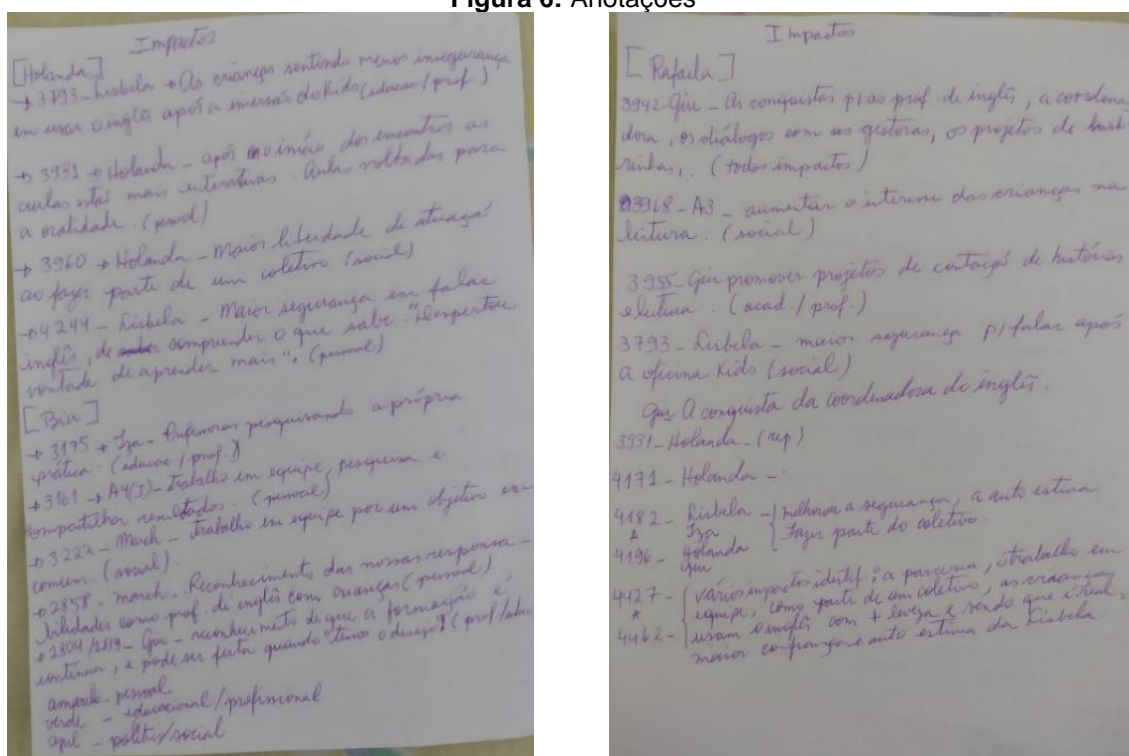 Figura 6: Anotações
Impactos
[Holanda]
→ 3793 - Lisbela → As crianças sentindo menos insegurança
em usar o inglês após a imersão do Kids (educac / prof.)
→ 3931 → Holanda - após o início dos encontros as
aulas estão mais interativas. Aulas voltadas para
a oralidade. (pessoal)
→ 3960 → Holanda - Maior liberdade de atuação
ao fazer parte de um coletivo (social)
→ 4244 - Lisbela - Maior segurança em falar
inglês, de compreender o que sabe. "Despertou
vontade de aprender mais". (pessoal)
[Bia]
→ 3175 → Iza - Professoras pesquisando a própria
prática. (educac / prof.)
→ 3161 → A4(I) - Trabalho em equipe, pesquisa e
compartilhar resultados. (pessoal)
→ 3222 - March - Trabalho em equipe por um objetivo em
comum. (social)
→ 2858 - March - Reconhecimento das nossas responsa-
bilidades como prof. de inglês com crianças (pessoal)
→ 2804 / 2819 - Giu - reconhecimento de que a formação é
contínua, e pode ser feita quando "temos o desejo" (prof/educ.
amarelo - pessoal
verde - educacional/profissional
azul - político/social
Impactos
[Rafaela]
3942 - Giu - As conquistas p/ as prof. de inglês, a coordena
dora, os diálogos com as gestoras, os projetos de
rinhas,. (todos impactos)
3968 - A3 - aumentar o interesse das crianças na
leitura. (social)
3955 - Giu promover projetos de contação de histórias
e leitura. (acad. / prof.)
3793 - Lisbela - maior segurança p/ falar após
a oficina Kids (social)
Giu A conquista da coordenadora do inglês.
3931 - Holanda - (rep)
4171 - Holanda - .
4182 - Lisbela - { melhorou a segurança, a auto estima
A Iza { Fazer parte do coletivo.
4196 - Holanda
Giu
4427 - { vários impactos identif: a parceria, o trabalho em
A { equipe, como parte de um coletivo, as crianças
{ usam o inglês com + leveza e vendo que é real,
4462 - { maior confiança e auto estima da Lisbela